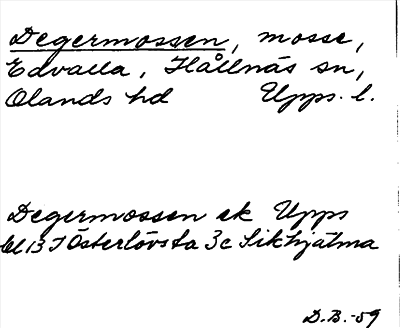 Degermossen, mosse,
Edvalla, Hållnäs sn,
Olands hd Upps. l.
Degermossen ek Upps
bl 13 J Österlövsta 3c Sikhjälma
D.B.-59